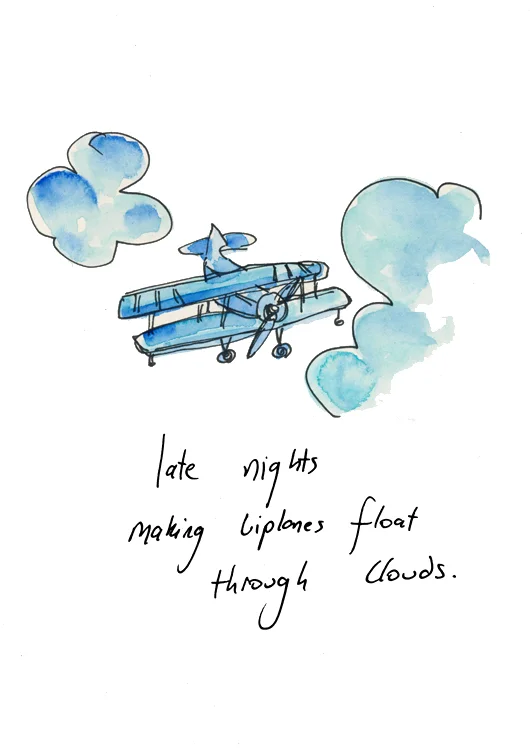 late nights
making biplanes float
through clouds.